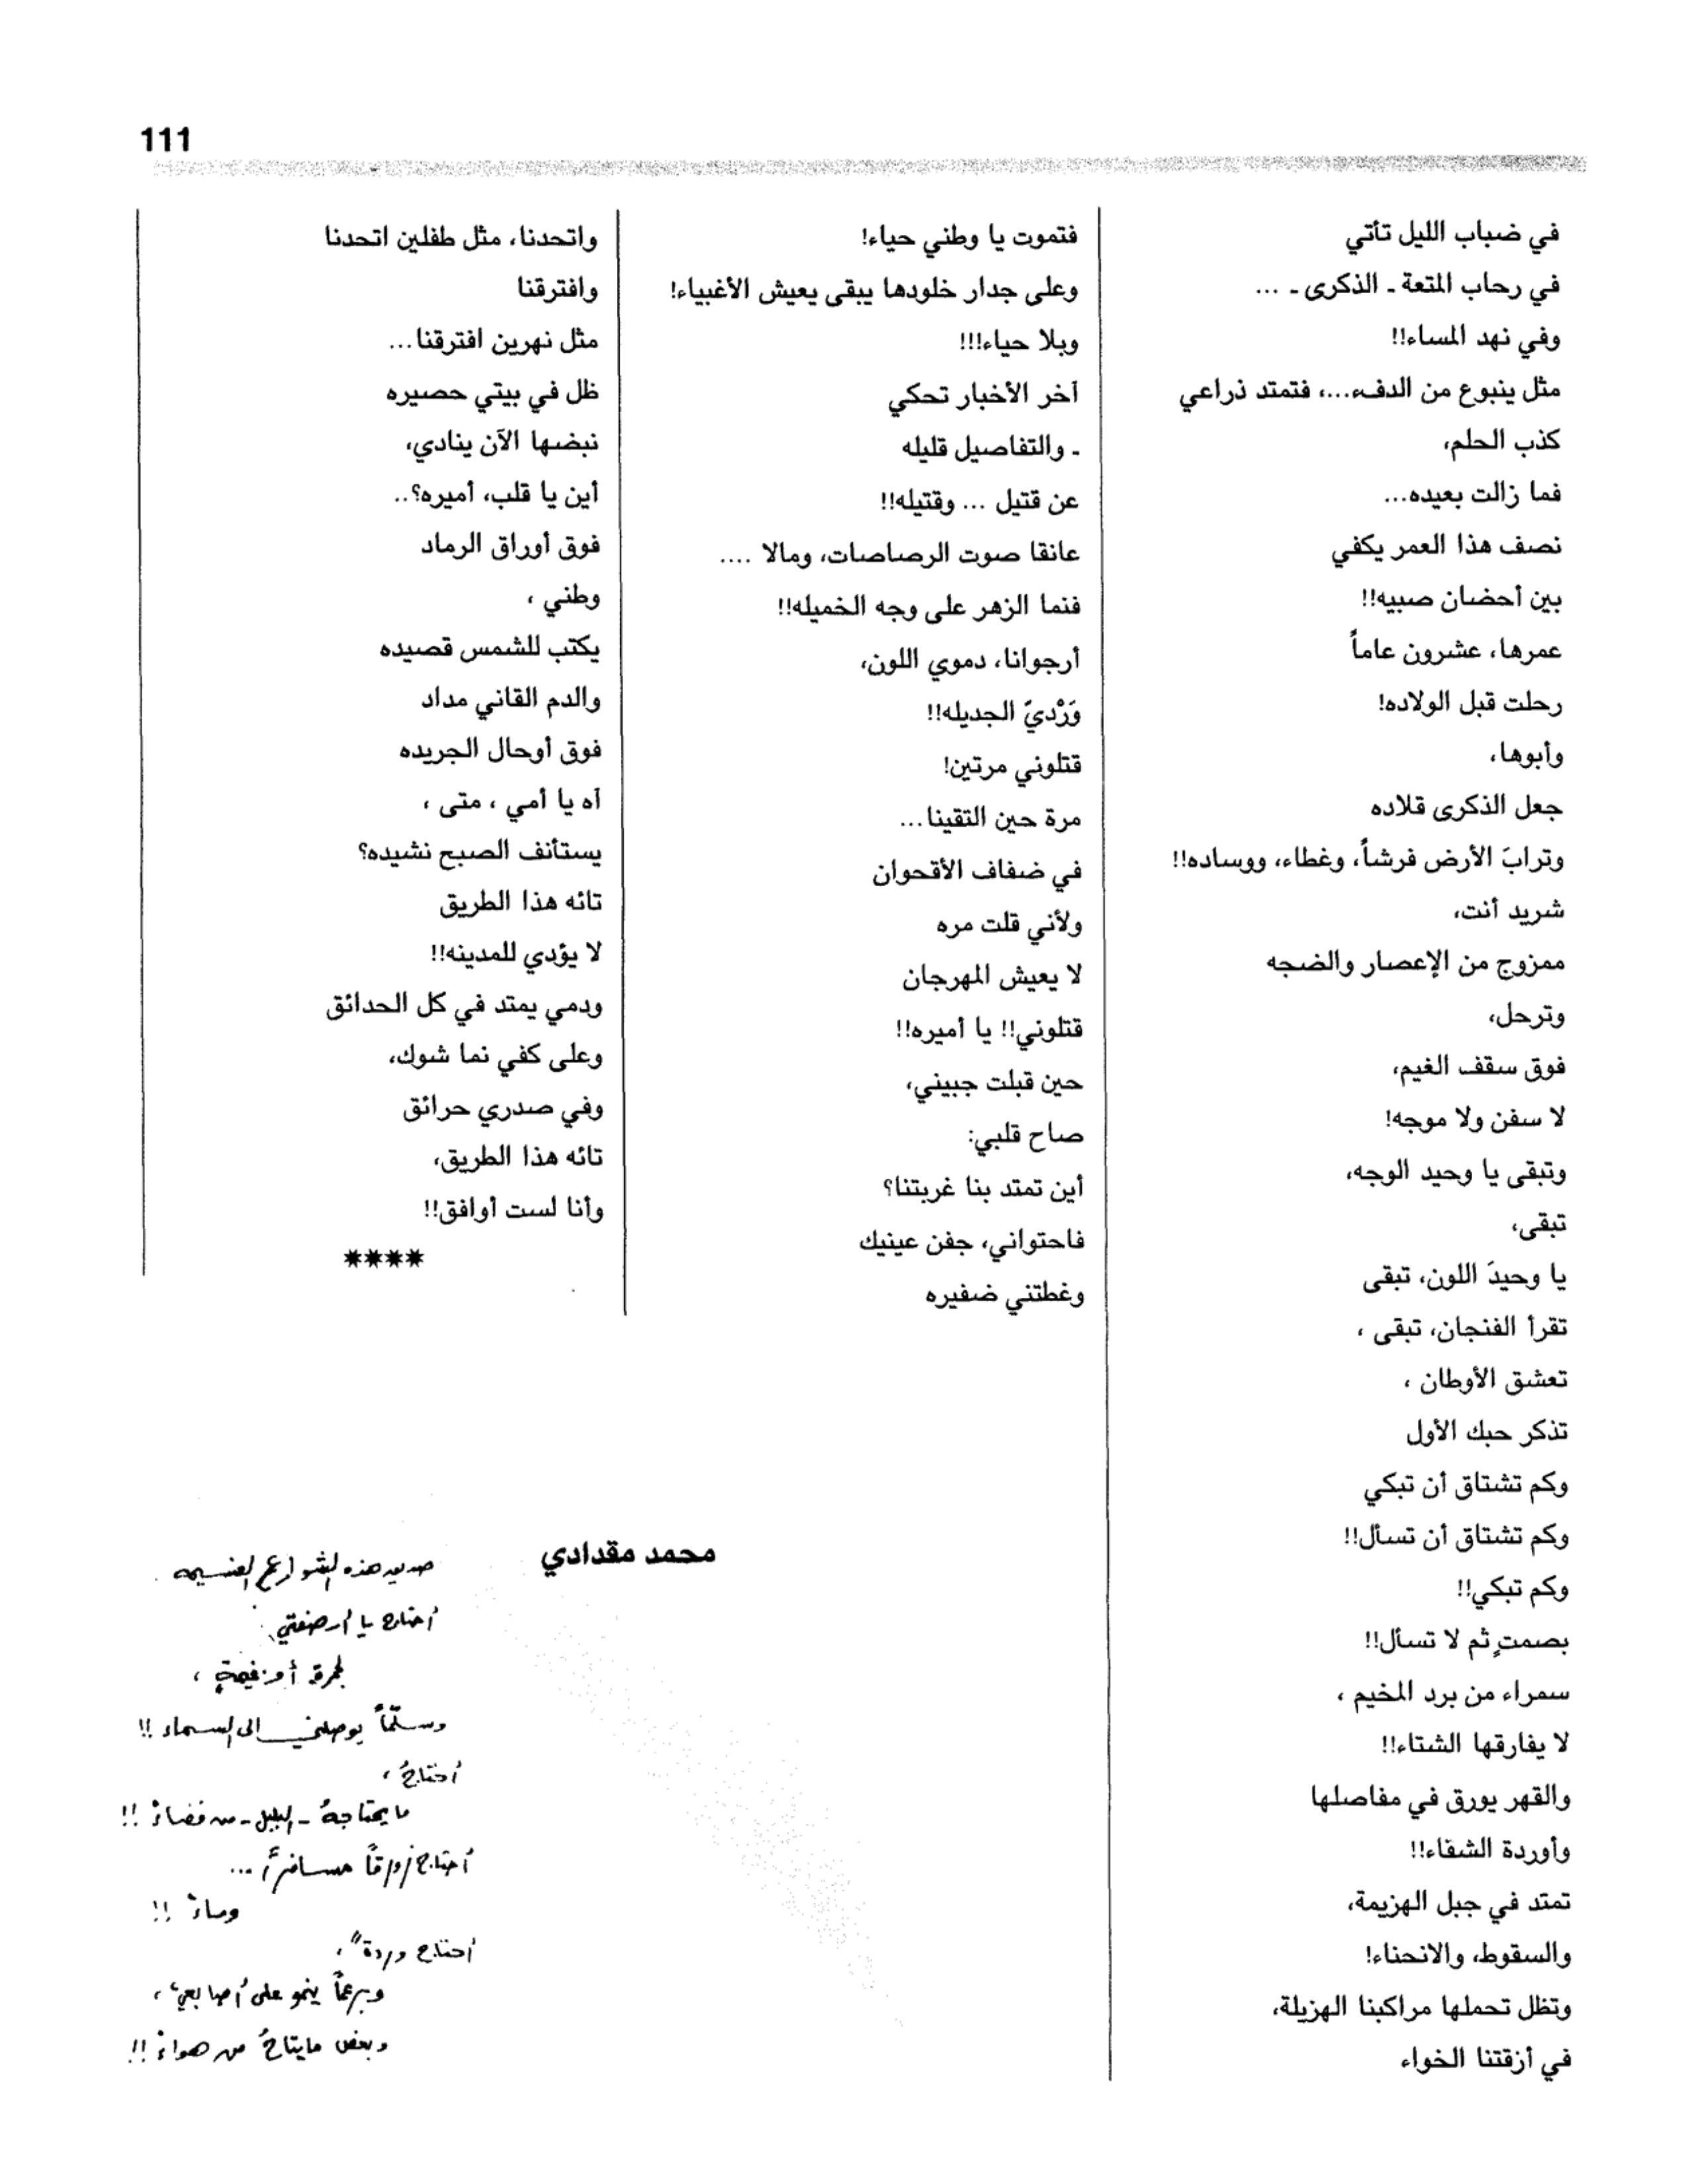 111
في ضباب الليل تأتي
في رحاب المتعة ـ الذكرى ـ ...
وفي نهد المساء!!
مثل ينبوع من الدفء...، فتمتد ذراعي
كذب الحلم،
فما زالت بعيده...
نصف هذا العمر يكفي
بين أحضان صبيه!!
عمرها، عشرون عاماً
رحلت قبل الولاده!
وأبوها،
جعل الذكرى قلاده
وترابَ الأرض فرشاً، وغطاء، ووساده!!
شريد أنت،
ممزوج من الإعصار والضجه
وترحل،
فوق سقف الغيم،
لا سفن ولا موجه!
وتبقى يا وحيد الوجه،
تبقى،
يا وحيدَ اللون، تبقى
تقرأ الفنجان، تبقى ،
تعشق الأوطان ،
تذكر حبك الأول
وكم تشتاق أن تبكي
وكم تشتاق أن تسأل!!
وكم تبكي!!
بصمتٍ ثم لا تسأل!!
سمراء من برد المخيم ،
لا يفارقها الشتاء!!
والقهر يورق في مفاصلها
وأوردة الشقاء!!
تمتد في جبل الهزيمة،
والسقوط، والانحناء!
وتظل تحملها مراكبنا الهزيلة،
في أزقتنا الخواء
فتموت يا وطني حياء!
وعلى جدار خلودها يبقى يعيش الأغبياء!
وبلا حياء!!!
آخر الأخبار تحكي
ـ والتفاصيل قليله
عن قتيل ... وقتيله!!
عانقا صوت الرصاصات، ومالا ....
فنما الزهر على وجه الخميله!!
أرجوانا، دموي اللون،
وَرْديّ الجديله!!
قتلوني مرتين!
مرة حين التقينا...
في ضفاف الأقحوان
ولأني قلت مره
لا يعيش المهرجان
قتلوني!! يا أميره!!
حين قبلت جبيني،
صاح قلبي:
أين تمتد بنا غربتنا؟
فاحتواني، جفن عينيك
وغطتني ضفيره
واتحدنا، مثل طفلين اتحدنا
وافترقنا
مثل نهرين افترقنا...
ظل في بيتي حصيره
نبضها الآن ينادي،
أين يا قلب، أميره؟..
فوق أوراق الرماد
وطني ،
يكتب للشمس قصيده
والدم القاني مداد
فوق أوحال الجريده
آه يا أمي ، متى ،
يستأنف الصبح نشيده؟
تائه هذا الطريق
لا يؤدي للمدينه!!
ودمي يمتد في كل الحدائق
وعلى كفي نما شوك،
وفي صدري حرائق
تائه هذا الطريق،
وأنا لست أوافق!!
****
محمد مقدادي
هذه الشوارع
أحتاج يا
لجمرة أو غيمةٍ ،
وسلّماً يوصلني إلى السماء !!
أحتاجُ ،
ما يحتاجهُ ـ البلبل ـ من فضاءْ !!
أحتاج زورقاً مسافراً ...
وماءْ !!
أحتاج وردةً ،
وبرعماً ينمو على أصابعي ،
وبعض ما يتاحُ من هواءْ !!